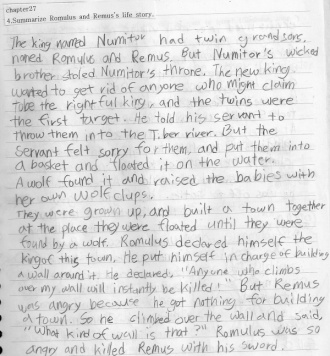 chapter27
4.Summarize Romulus and Remus's life story.
The king named Numitor had twin grandsons,
named Romulus and Remus. But Numitor's wicked
brother stoled Numitor's throne. The new king
wanted to get rid of anyone who might claim
to be the rightful king, and the twins were
the first target. He told his servant to
throw them into the Tiber river. But the
servant felt sorry for them, and put them into
a basket and floated it on the water.
A wolf found it and raised the babies with
her own wolf clups.
They were grown up, and built a town together
at the place they were floated until they were
found by a wolf. Romulus declared himself the
king of this town. He put himself in charge of building
a wall around it. He declared, "Anyone who climbs
over my wall will instantly be killed!" But Remus
was angry because he got nothing for building
a town. So he climbed over the wall and said,
"What kind of wall is that?" Romulus was so
angry and killed Remus with his sword.